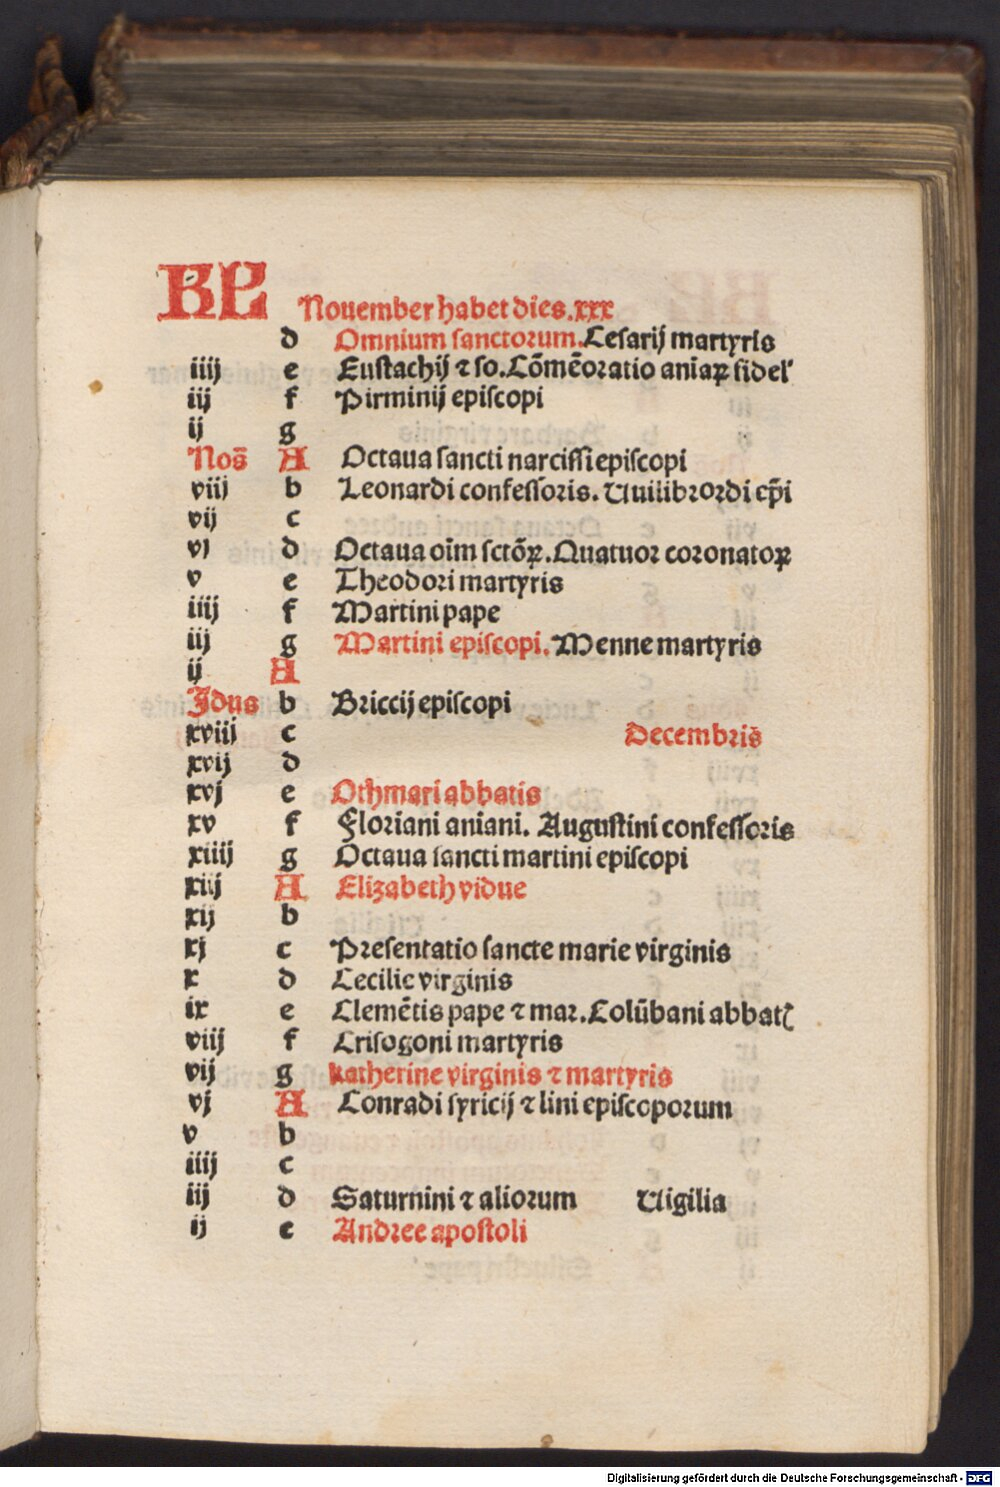 KL Nouember habet dies.xxx
d Omnium sanctorum.Cesarij martyris
iiij e Eustachij ⁊ so.Cōmēoratio aniaꝝ fidel'
iij f Pirminij episcopi
ij g
Nos̄ A Octaua sancti narcissi episcopi
viij b Leonardi confessoris. Uuilibrordi ep̄i
vij c
vj d Octaua oīm sctōꝝ.Quatuor coronatoꝝ
v e Theodori martyris
iiij f Martini pape
iij g Martini episcopi.Menne martyris
ij A
Jdus b Briccij episcopi
xviij c Decembris
xvij d
xvj e Othmari abbatis
xv f Floriani aniani. Augustini confessoris
xiiij g Octaua sancti martini episcopi
xiij A Elizabeth vidue
xij b
xj c Presentatio sancte marie virginis
x d Cecilie virginis
ix e Clemētis pape ⁊ mar.Colūbani abbatꝭ
viij f Crisogoni martyris
vij g katherine virginis ⁊ martyris
vj A Conradi syricij ⁊ lini episcoporum
v b
iiij c
iij d Saturnini ⁊ aliorum Uigilia
ij e Andree apostoli
Digitalisierung gefördert durch die Deutsche Forschungsgemeinschaft - DFG